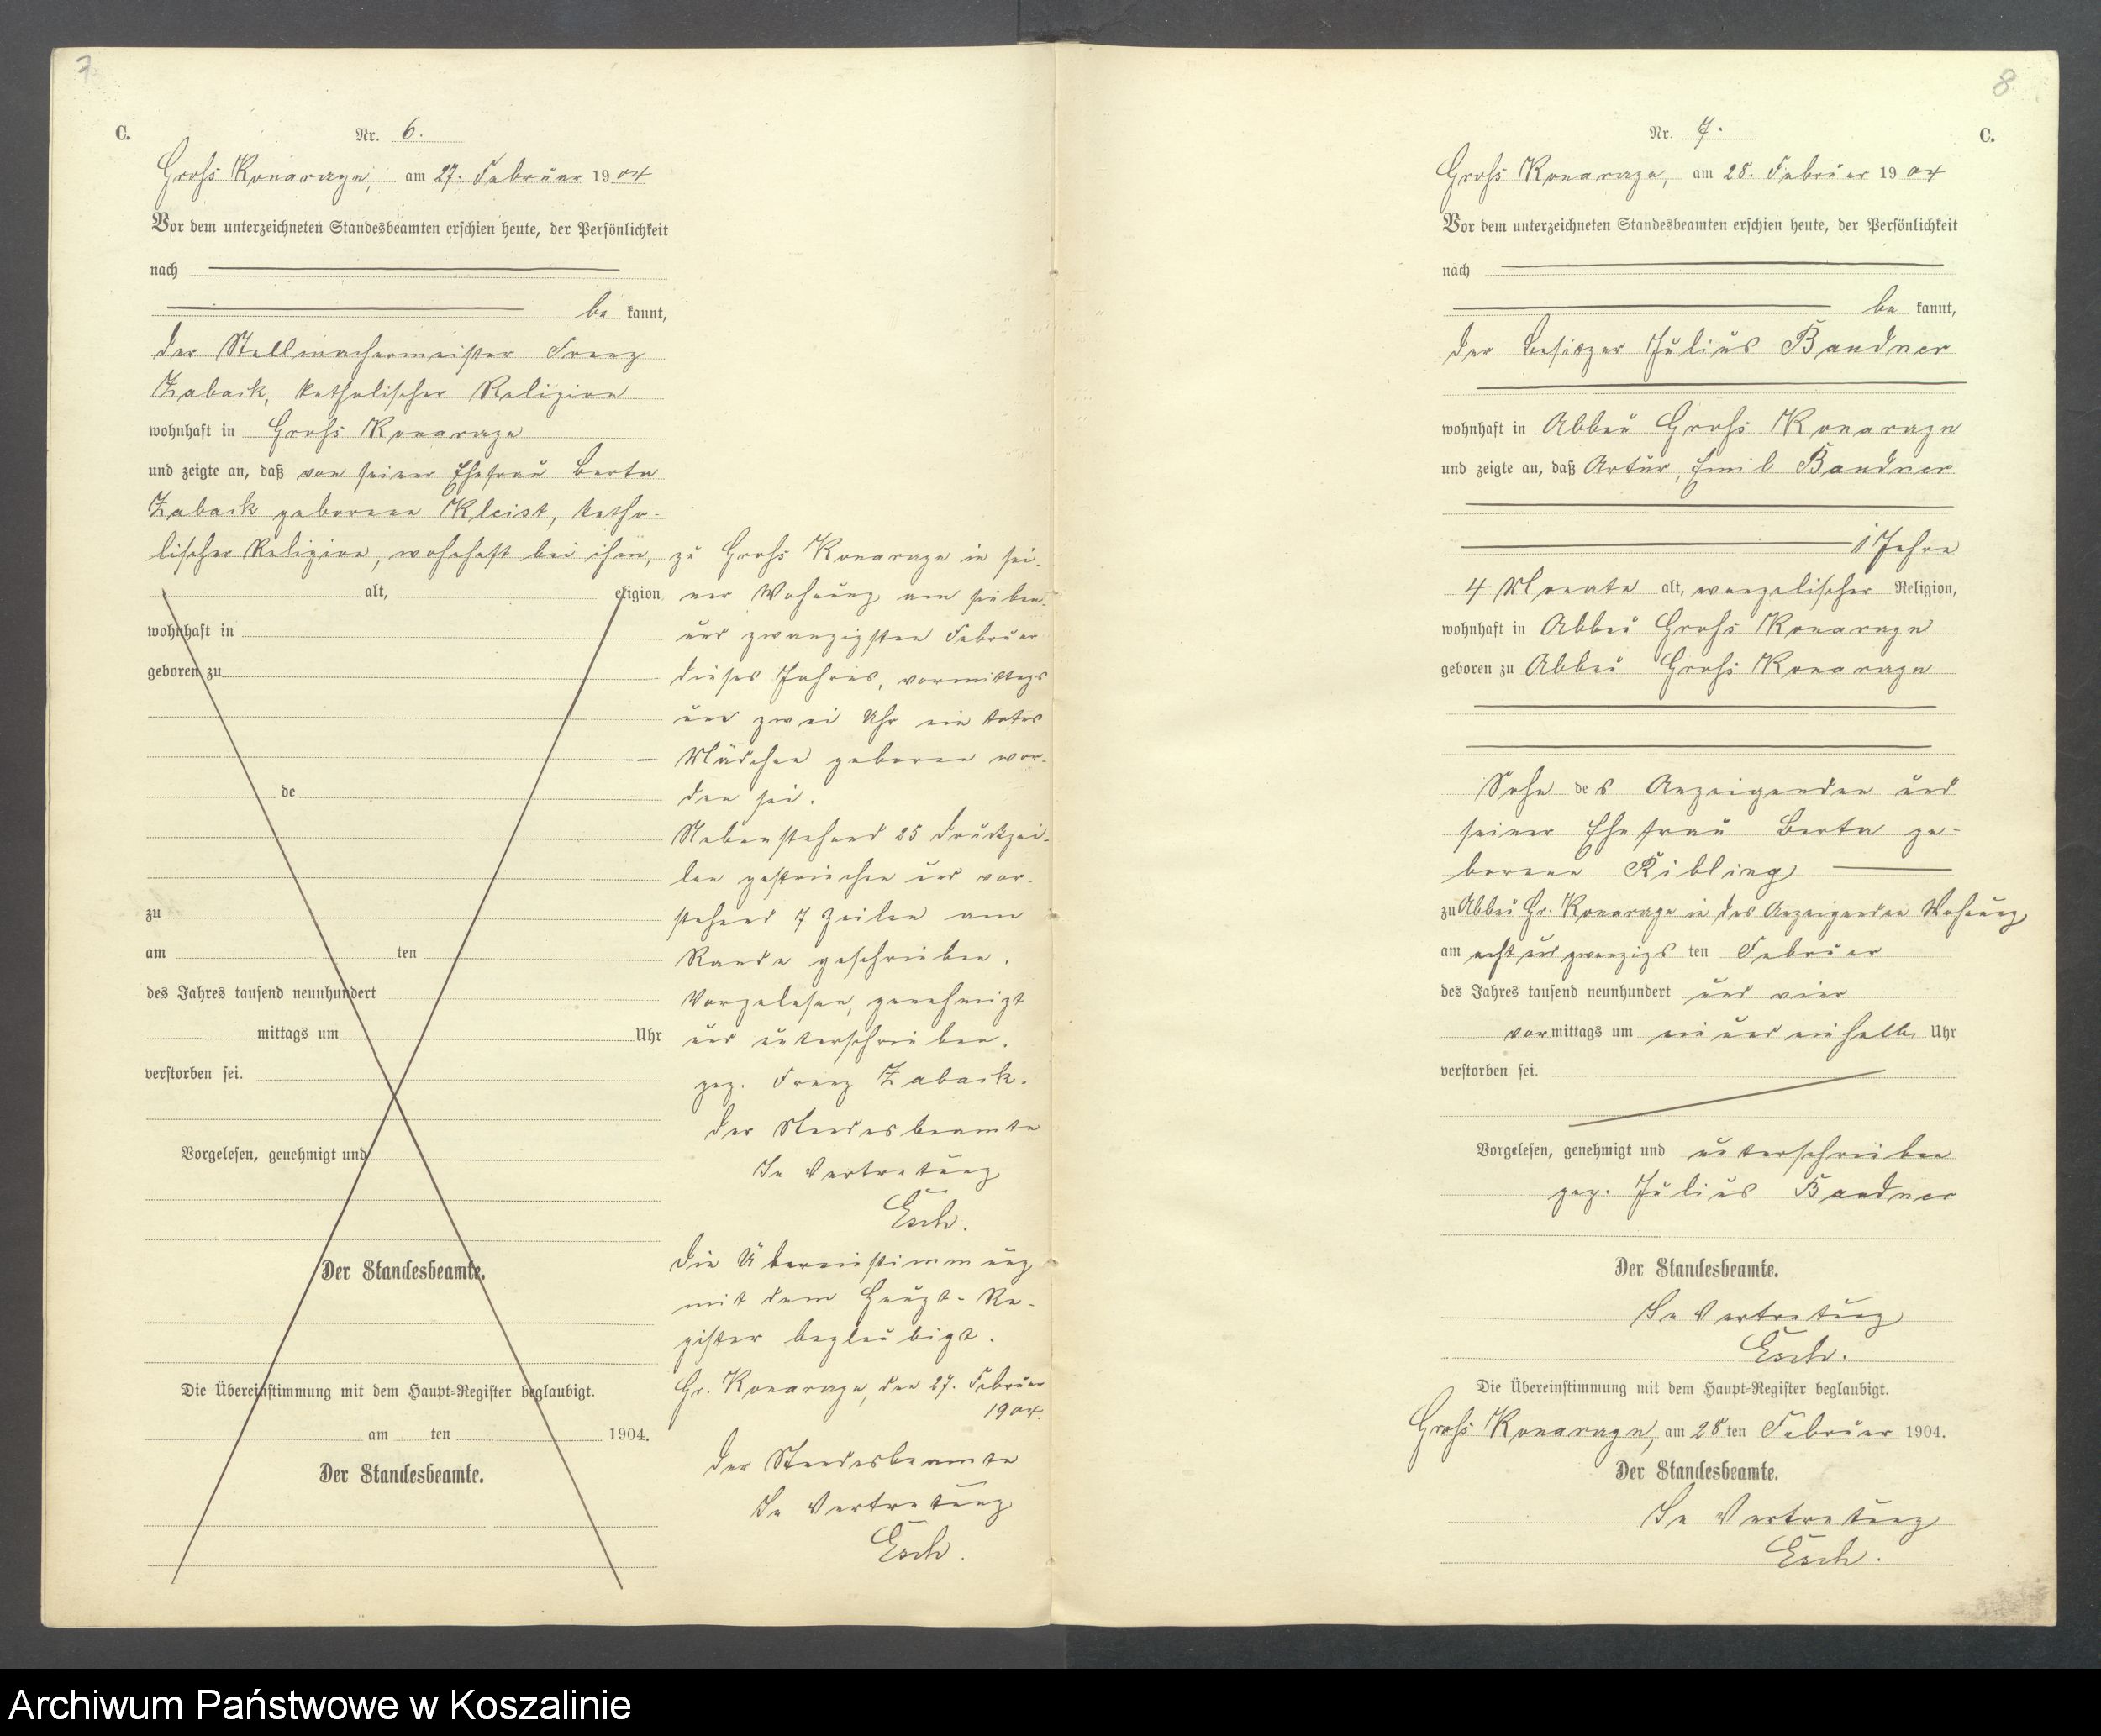 7.
C.
Nr. 6.
Gross Konarzyn, am 27. Februar 1904
Vor dem unterzeichneten Standesbeamten erschien heute, der Persönlichkeit
nach
be kannt,
der Stellmachermeister Franz
Zaback, katholischer Religion
wohnhaft in Gross Konarzyn
und zeigte an, daß von seiner Ehefrau Berta
Zaback geborene Kleist, katho-
lischer Religion, wohnhaft bei ihm,
alt, eligion
wohnhaft in
geboren zu
de
zu
am ten
des Jahres tausend neunhundert
mittags um Uhr
verstorben sei.
Vorgelesen, genehmigt und
Der Standesbeamte.
Die Übereinstimmung mit dem Haupt-Register beglaubigt.
am ten 1904.
Der Standesbeamte.
zu Gross Konarzyn in sei-
ner Wohnung am sieben-
und zwanzigsten Februar
dieses Jahres, vormittags
um zwei Uhr ein totes
Mädchen geboren wor-
den sei.
Nebenstehend 25 Druckzei-
len gestrichen und vor-
stehend 7 Zeilen am
Rande geschrieben.
Vorgelesen, genehmigt
und unterschrieben.
gez. Franz Zaback.
Der Standesbeamte
In Vertretung
Esch.
Die Übereinstimmung
mit dem Haupt-Re-
gister beglaubigt.
Gr. Konarzyn, den 27. Februar
1904.
Der Standesbeamte
In Vertretung
Esch.
8
C.
Nr. 7.
Gross Konarzyn, am 28. Februar 1904
Vor dem unterzeichneten Standesbeamten erschien heute, der Persönlichkeit
nach
be kannt,
der Besitzer Julius Bandner
wohnhaft in Abbau Gross Konarzyn
und zeigte an, daß Artur, Emil Bandner
1 Jahre
4 Monate alt, evangelischer Religion,
wohnhaft in Abbau Gross Konarzyn
geboren zu Abbau Gross Konarzyn
Sohn des Anzeigenden und
seiner Ehefrau Berta ge-
borene Ribling
zu Abbau Gr. Konarzyn in des Anzeigenden Wohnung
am acht und zwanzigs ten Februar
des Jahres tausend neunhundert und vier
vormittags um ein und einhalb Uhr
verstorben sei.
Vorgelesen, genehmigt und unterschrieben
gez. Julius Bandner
Der Standesbeamte.
In Vertretung
Esch.
Die Übereinstimmung mit dem Haupt-Register beglaubigt.
Gross Konarzyn, am 28 ten Februar 1904.
Der Standesbeamte.
In Vertretung
Esch.
Archiwum Państwowe w Koszalinie